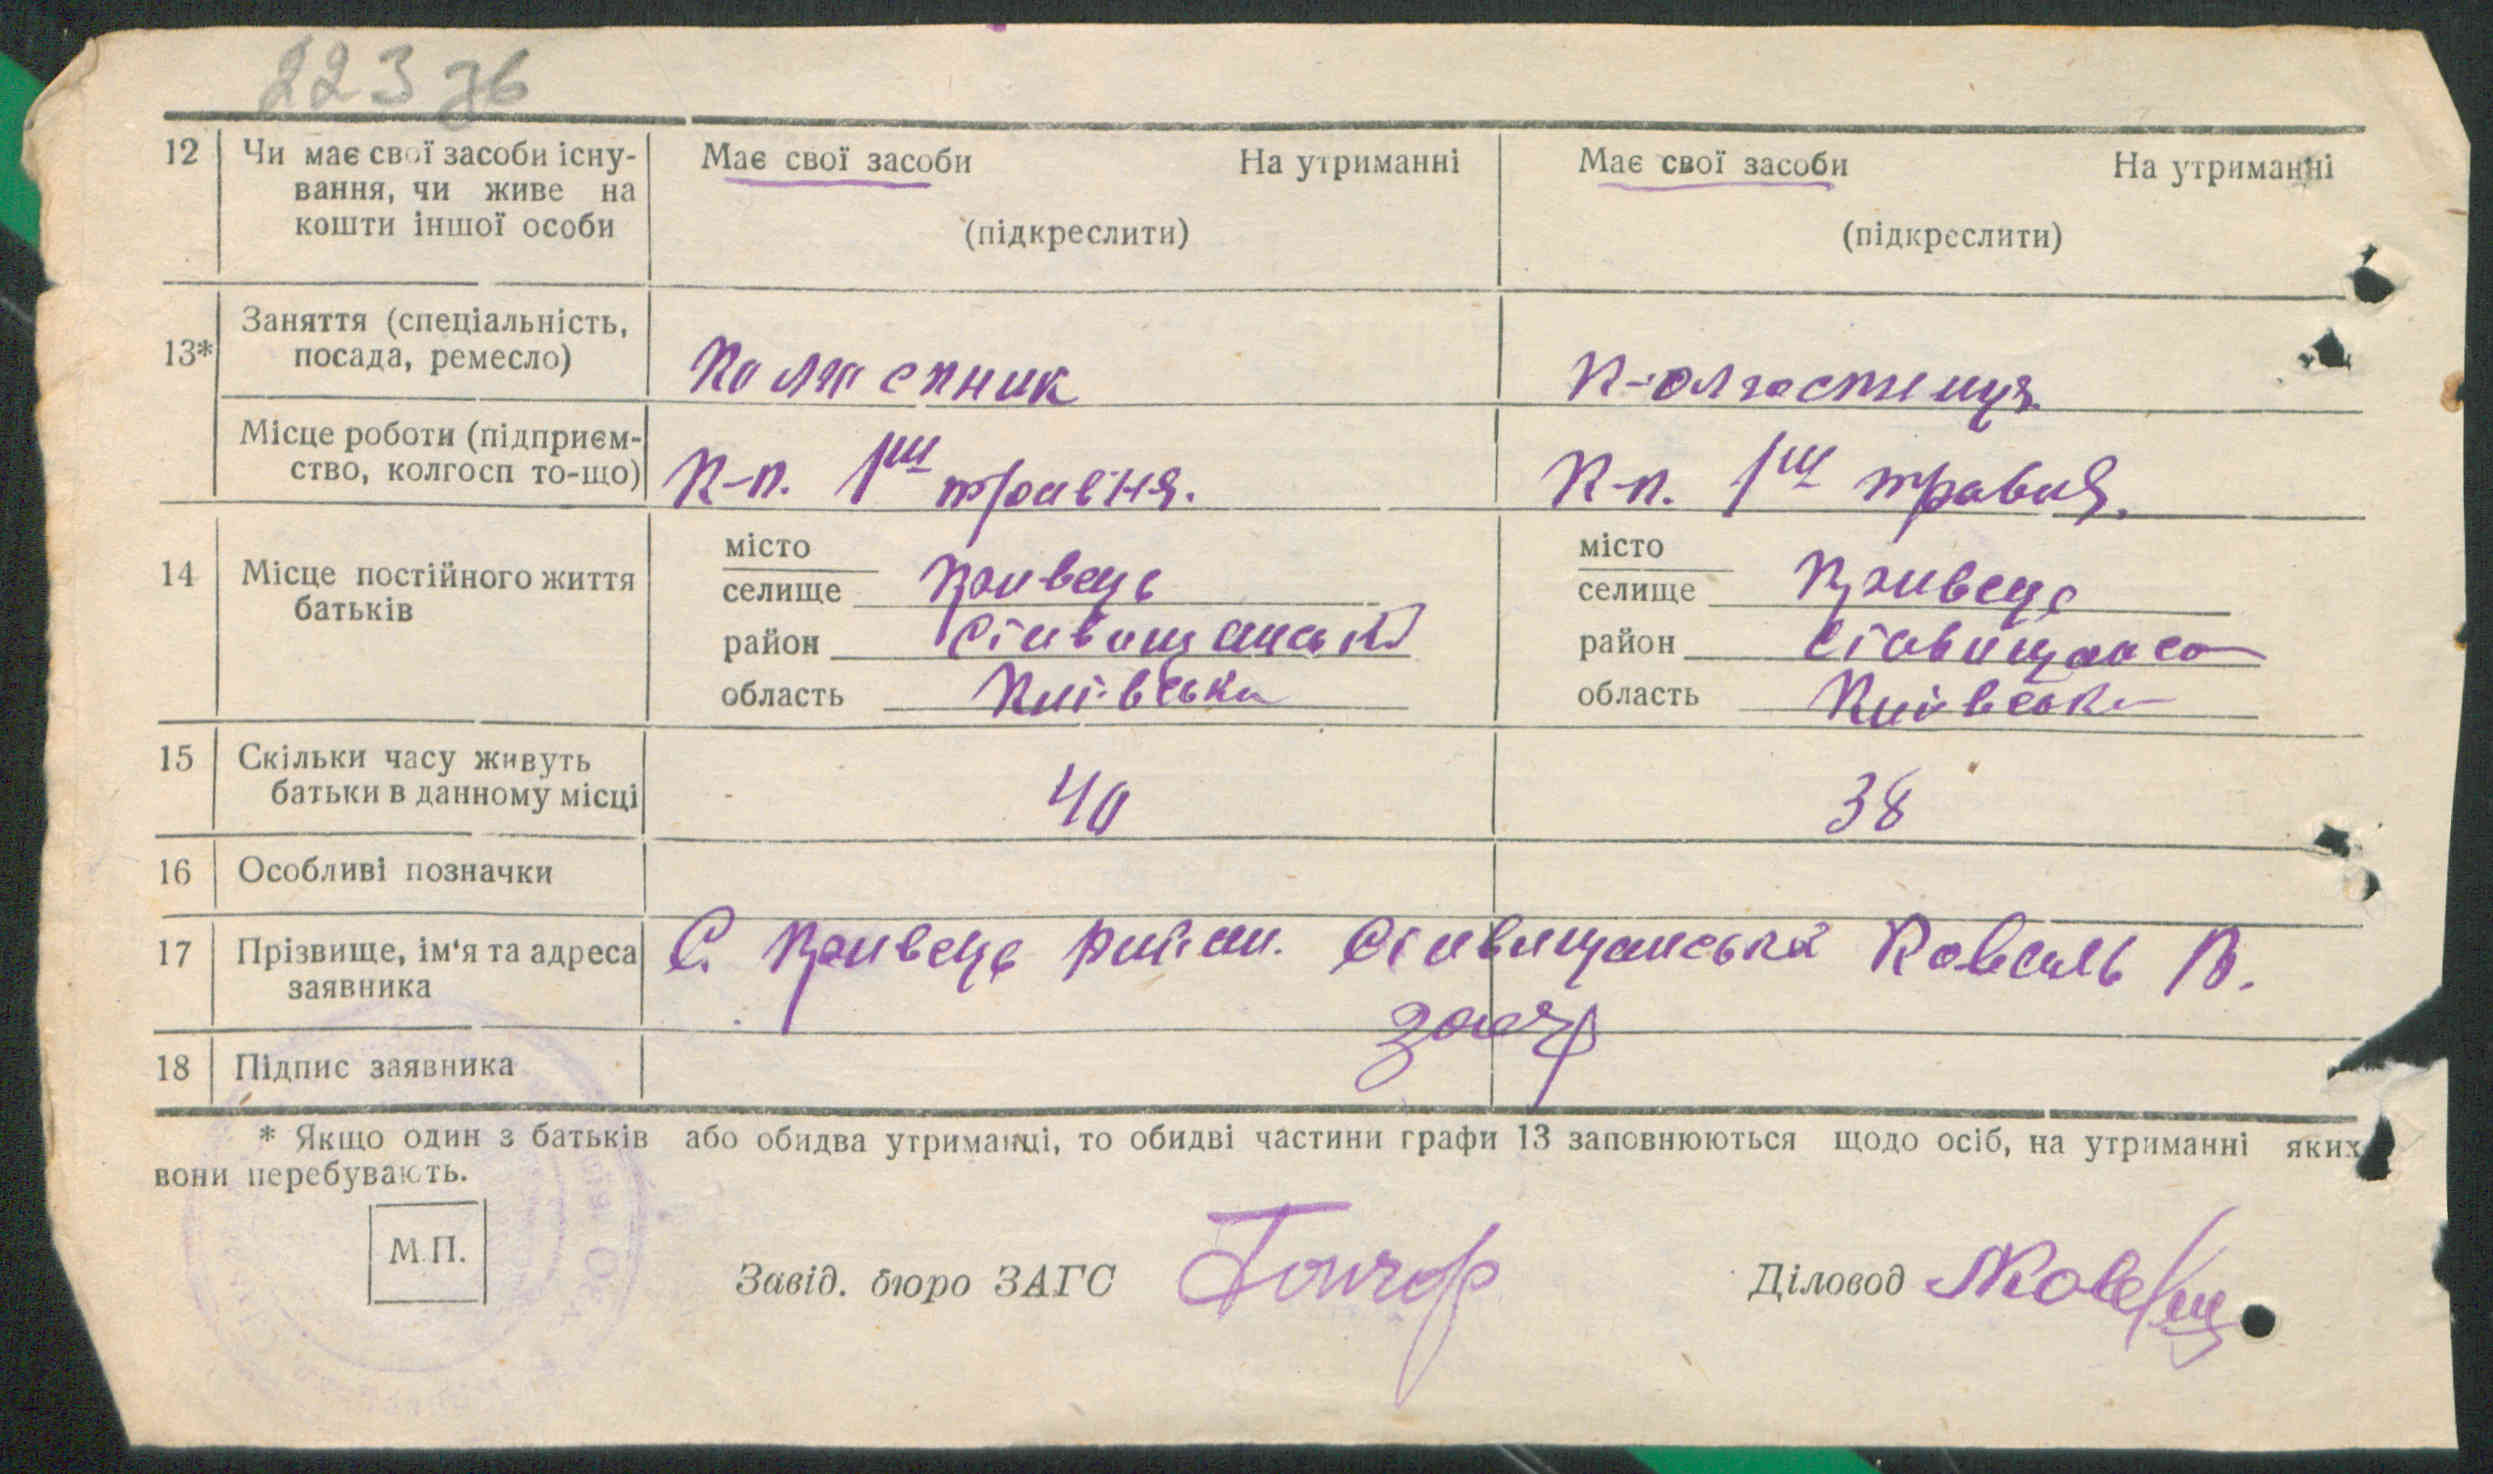 223 зв
12 Чи має свої засоби існу- Має свої засоби На утриманні Має свої засоби На утриманні
вання, чи живе на
кошти іншої особи (підкреслити) (підкреслити)
Заняття (спеціальність,
13* посада, ремесло) Колгоспник К-олгоспниця
Місце роботи (підприєм-
ство, колгосп то-що) К-п. 1ш травня. К-п. 1ш травня.
місто місто
14 Місце постійного життя селище Кривець селище Кривець
батьків район Ставищанський район
область Київська область Київська
15 Скільки часу живуть
батьки в данному місці 40 38
16 Особливі позначки
17 Прізвище, ім'я та адреса С. Кривець Ставищанська Коваль В.
заявника
18 Підпис заявника
* Якщо один з батьків або обидва утриманці, то обидві частини графи 13 заповнюються щодо осіб, на утриманні яких
вони перебувають.
М.П.
Завід. бюро ЗАГС Гончар Діловод